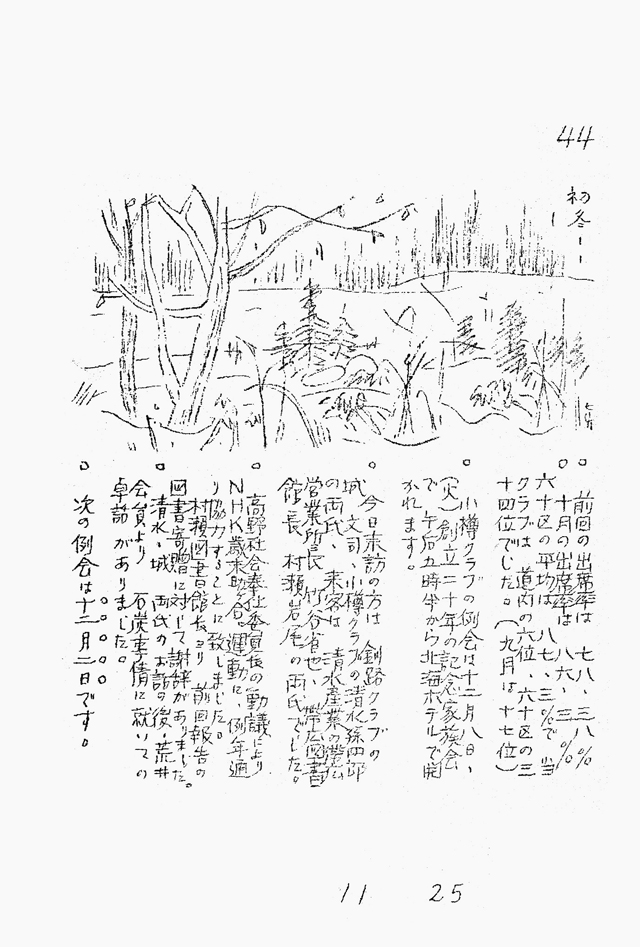 44
初冬
○ 前回の出席率は 七八、三八%
○ 十月の出席率は 八六、三%
六十区の平均は 八七、三%で 当
クラブは 道内の六位、六十区の三
十四位でした。(九月は 十七位)
○ 小樽クラブの例会は十二月八日、
(火)創立二十年の記念家族会
で 午后五時半から北海ホテルで開
かれます。
○ 今日来訪の方は 釧路クラブの
城 文司、小樽クラブの清水孫四郎
の両氏、来客は 清水産業の帯広
営業所長 竹谷省也、帯広図書
館長 村瀬岩尾 の両氏でした。
○ 高野社会奉仕委員長の動議により
NHK歳末助け合い運動に、例年通
り協力することに致しました。
村瀬図書館長より 前回報告の
図書寄贈に対して謝辞がありました。
○ 清水、城 両氏のお話の後、荒井
会員より 石炭事情に就いての
卓話 がありました。
○○○○○
○ 次の例会は十二月二日です。
11 25